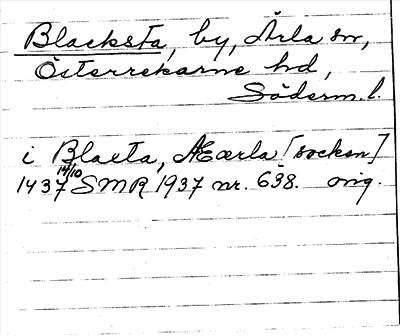 Blacksta, by, Ärla sn,
Österrekarne hd,
Söderm.l.
i Blasta, Æærla [socken]
1437 14/10 SMR 1937 nr. 638. orig.